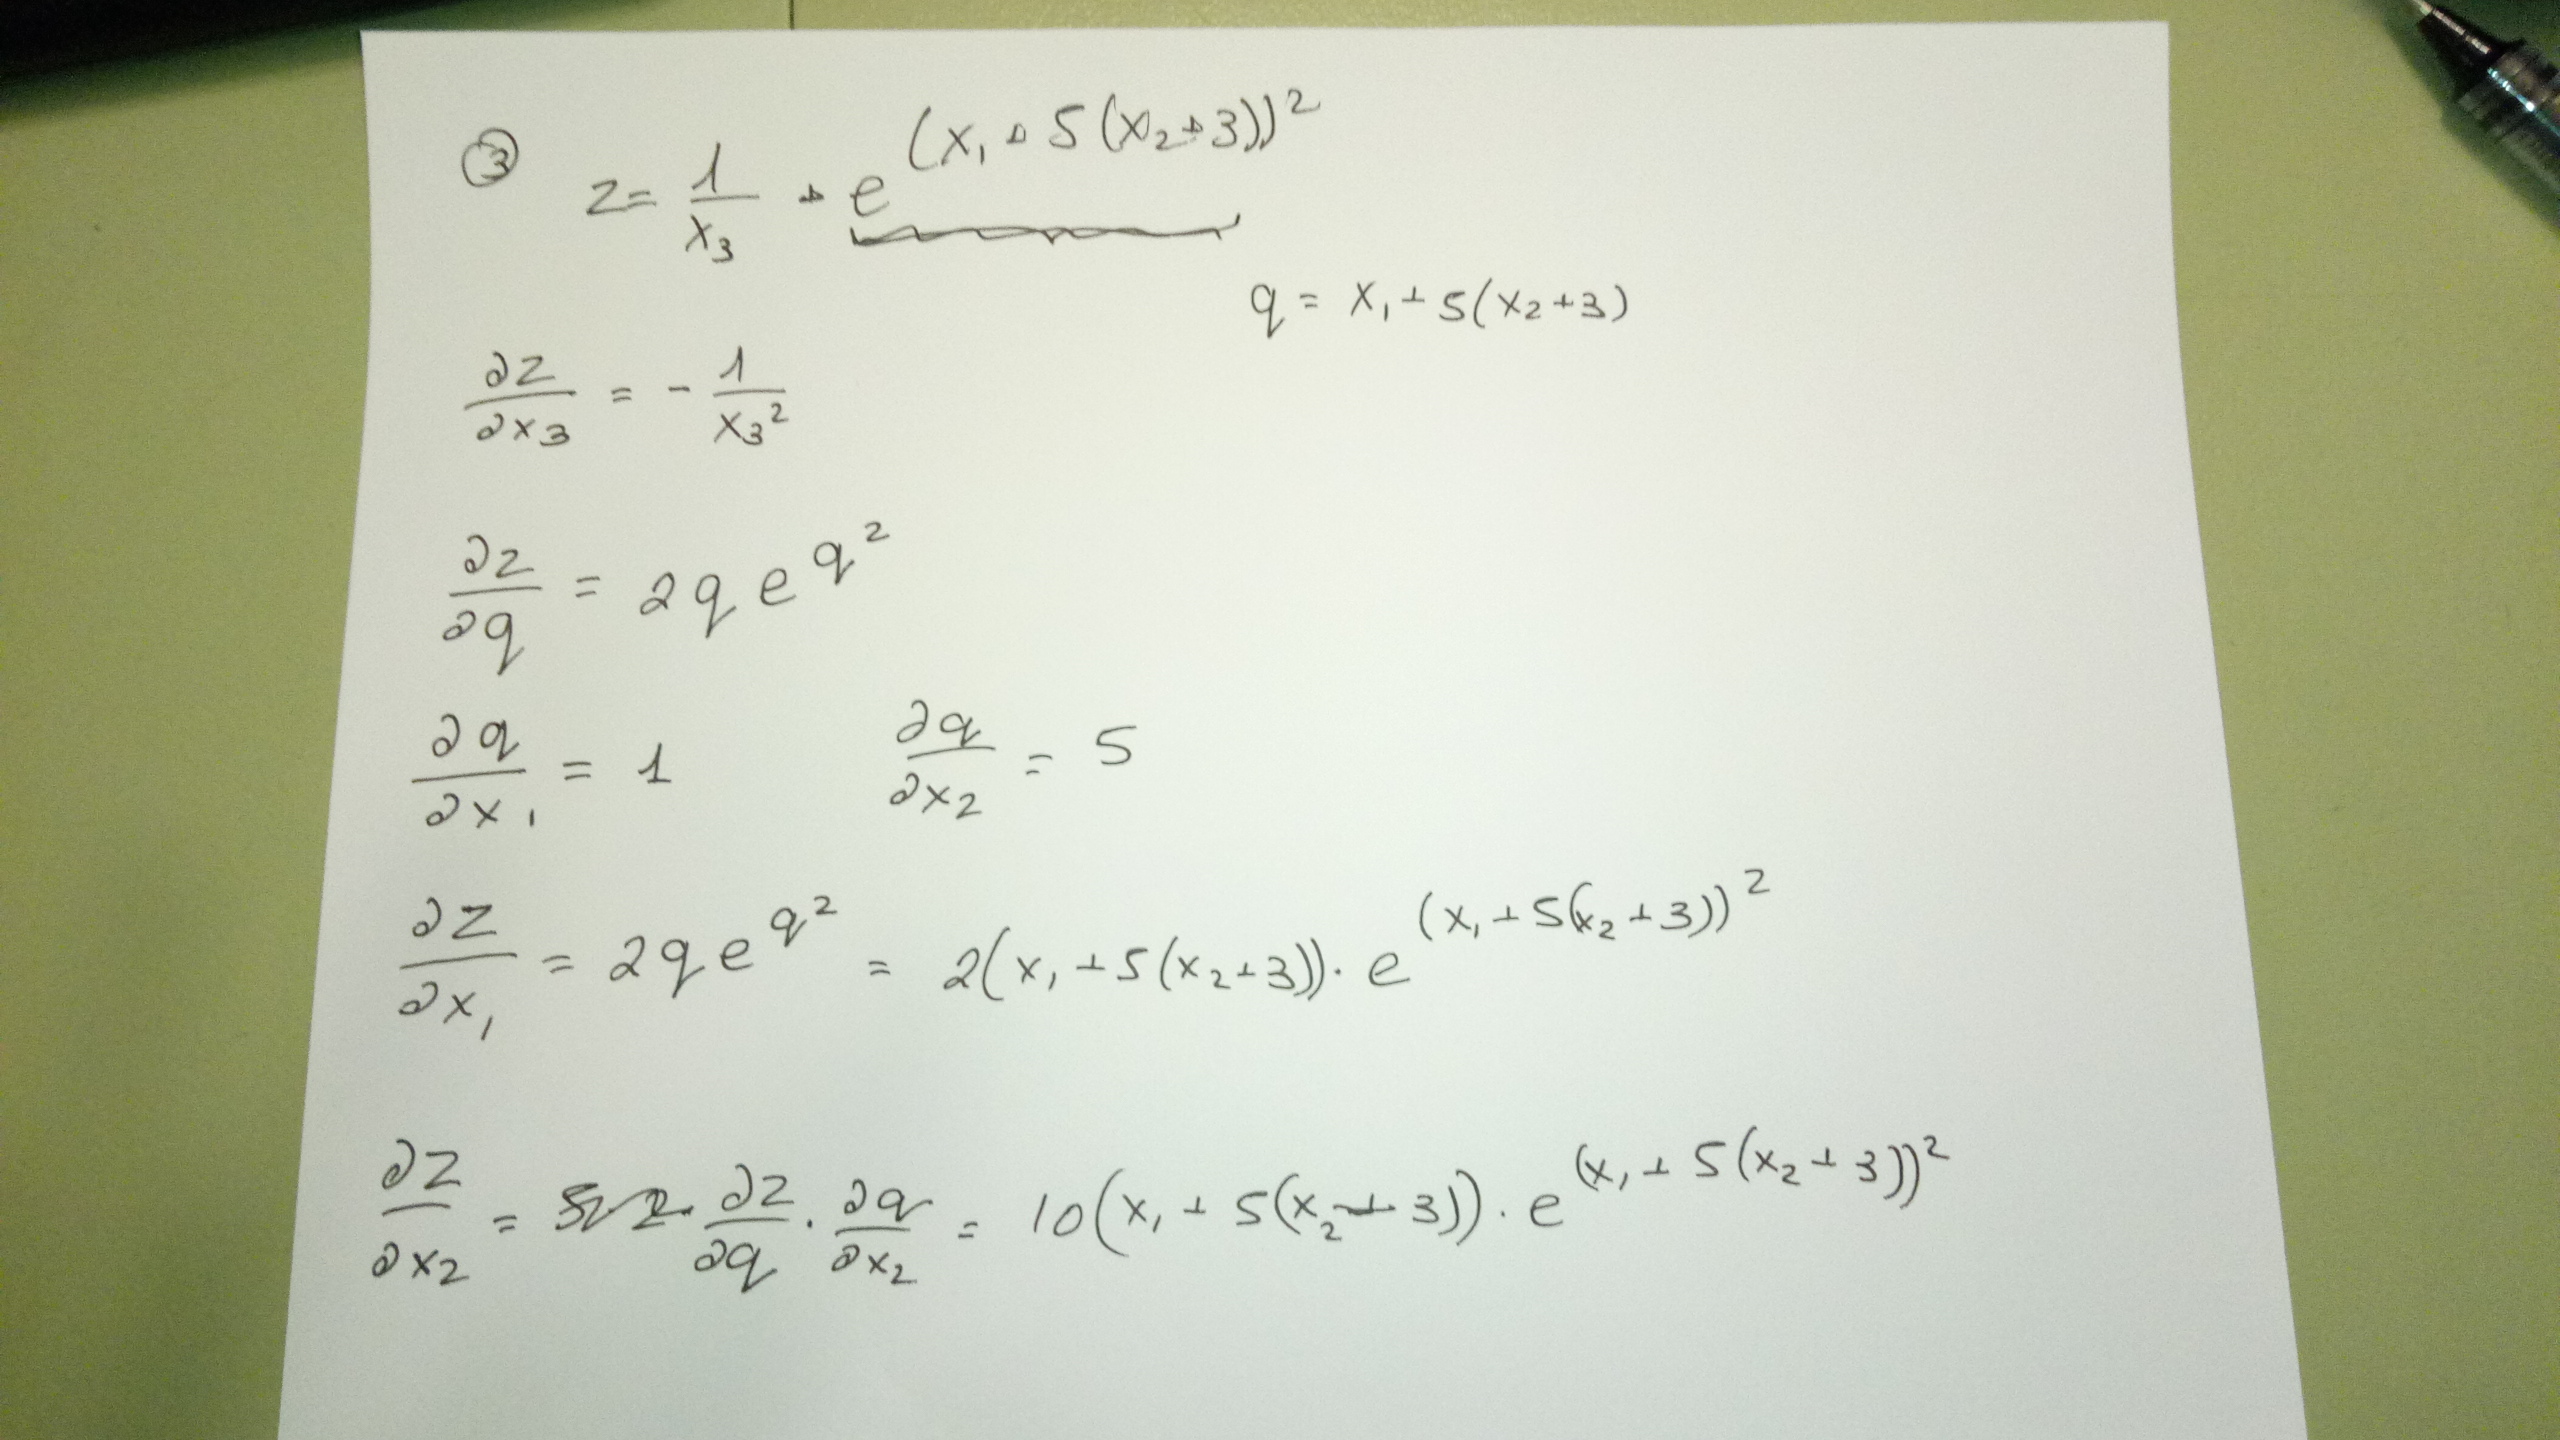 ③ z = 1/x₃ + e^(x₁ + 5(x₂+3))²
q = x₁ + 5(x₂+3)
∂z/∂x₃ = - 1/x₃²
∂z/∂q = 2qe^q²
∂q/∂x₁ = 1 ∂q/∂x₂ = 5
∂z/∂x₁ = 2qe^q² = 2(x₁ + 5(x₂+3)) · e^(x₁ + 5(x₂+3))²
∂z/∂x₂ = ∂z/∂q · ∂q/∂x₂ = 10(x₁ + 5(x₂+3)) · e^(x₁ + 5(x₂+3))²